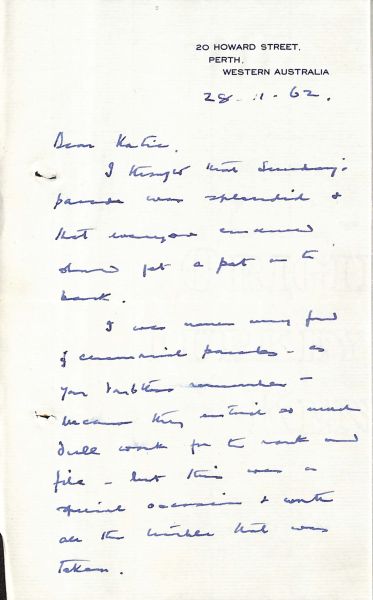 20 HOWARD STREET,
PERTH,
WESTERN AUSTRALIA
28. 11. 62.
Dear Katie,
I thought that Sunday's
parade was splendid &
that everyone concerned
should get a pat on the
back.
I was never very fond
of ceremonial parades - as
you doubtless remember -
because they entail so much
dull work for the rank and
file - but this was a
special occasion & worth
all the trouble that was
taken.